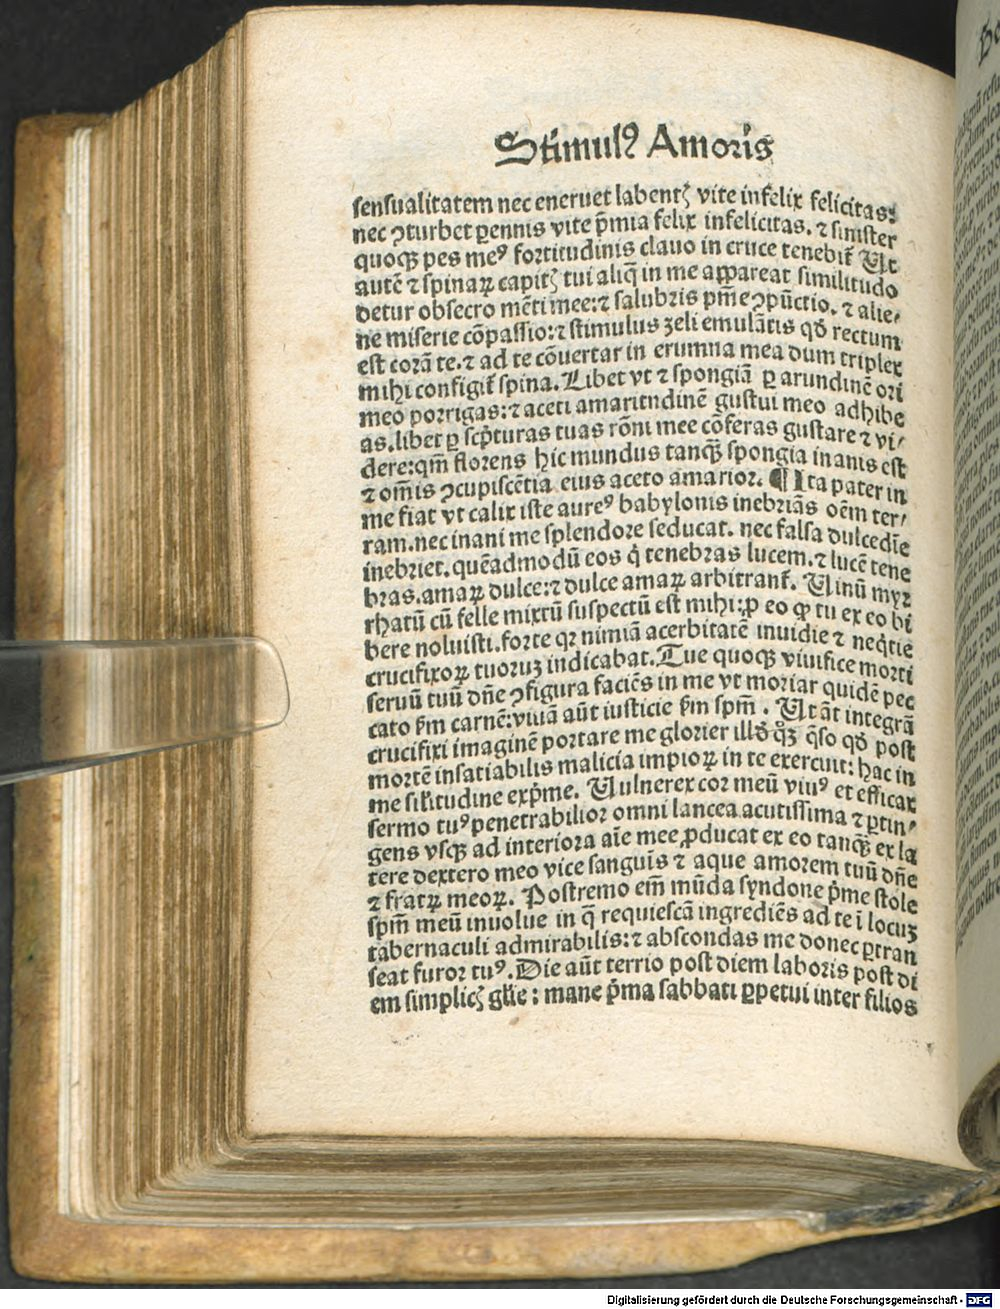 Stimulꝰ Amoris
sensualitatem nec eneruet labentꝭ vite infelix felicitas:
nec ↄturbet ꝑennis vite p̄mia felix infelicitas. ⁊ sinister
quoqꝫ pes meꝰ fortitudinis clauo in cruce tenebit᷑ Ut
autē ⁊ spinaꝝ capitꝭ tui aliq̄ in me appareat similitudo
detur obsecro mēti mee: ⁊ salubris pn̄ie ↄpūctio. ⁊ alie,
ne miserie cōpassio: ⁊ stimulus zeli emulātis qđ rectum
est corā te. ⁊ ad te cōuertar in erumna mea dum triplex
mihi configit᷑ spina. Libet vt ⁊ spongiā ꝑ arundinē ori
meo porrigas: ⁊ aceti amaritudinē gustui meo adhibe
as. libet ꝑ scp̄turas tuas rōni mee cōferas gustare ⁊ vi⸗
dere: qm̄ florens hic mundus tanqꝫ spongia inanis est
⁊ om̄is ↄcupiscētia eius aceto amarior. ¶ Ita pater in
me fiat vt calix iste aureꝰ babylonis inebriās oēm ter⸗
ram. nec inani me splendore seducat. nec falsa dulcedīe
inebriet. quēadmodū eos q̇ tenebras lucem. ⁊ lucē tene
bras. amaꝝ dulce: ⁊ dulce amaꝝ arbitrant᷑. Uinū myr
rhatū cū felle mixtū suspectū est mihi: ꝓ eo ꝙ tu ex eo bi
bere noluisti. forte qꝛ nimiā acerbitatē inuidie ⁊ neq̇tie
crucifixoꝝ tuoruꝫ indicabat. Tue quoqꝫ viuifice morti
seruū tuū dn̄e ↄfigura faciēs in me vt moriar quidē pec
cato ẜm carnē: viuā aūt iusticie ẜm spm̄. Ut āt integrā
crucifixi imaginē portare me glorier illđ qͦꝫ q̄so qđ post
mortē insatiabilis malicia impioꝝ in te exercuit: hac in
me siłitudine exp̄me. Uulneret cor meū viuꝰ et efficax
sermo tuꝰ penetrabilior omni lancea acutissima ⁊ ꝑtin⸗
gens vsqꝫ ad interiora aīe mee ꝓducat ex eo tanqꝫ ex la
tere dextero meo vice sanguīs ⁊ aque amorem tuū dn̄e
⁊ fratꝝ meoꝝ. Postremo em̄ mūda syndone p̄me stole
spm̄ meū inuolue in q̄ requiescā ingrediēs ad te ī locuꝫ
tabernaculi admirabilis: ⁊ abscondas me donec ꝑtran
seat furor tuꝰ. Die aūt tertio post diem laboris post di
em simplicꝭ gl̄ie: mane p̄ma sabbati ꝑpetui inter filios
Digitalisierung gefördert durch die Deutsche Forschungsgemeinschaft - DFG